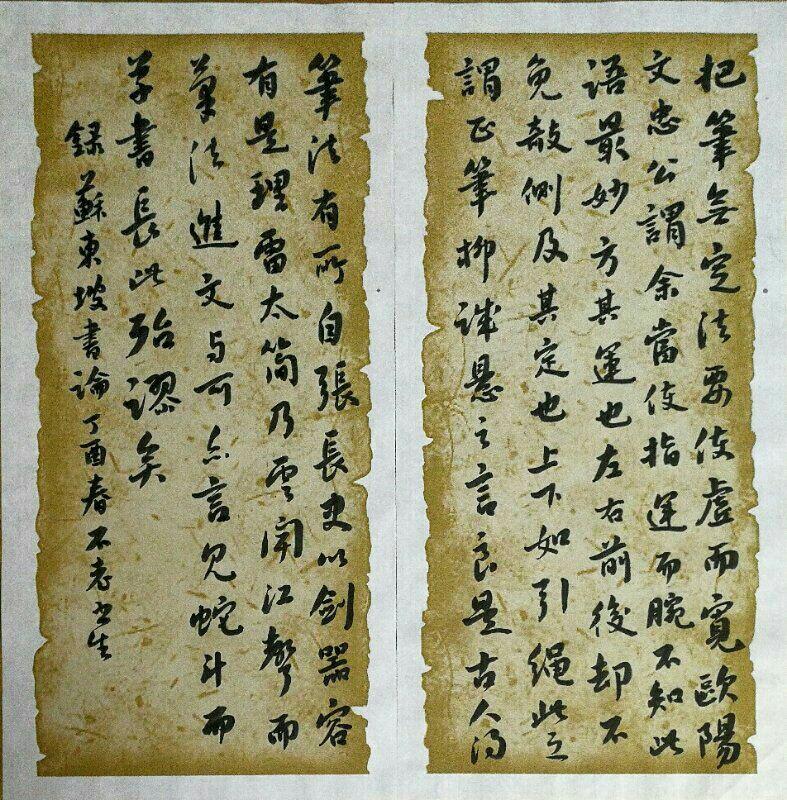 把筆無定法要使虛而寬歐陽
文忠公謂余當使指運而腕不知此
语最妙方其運也左右前後却不
免敧側及其定也上下如引繩此之
謂正筆柳诚懸之言良是古人得
筆法有所自張長史以劍器容
有是理雷太简乃雲闻江聲而
筆法進文与可亦言見蛇斗而
草書長此殆謬矣
録蘇東坡書論丁酉春不老书生